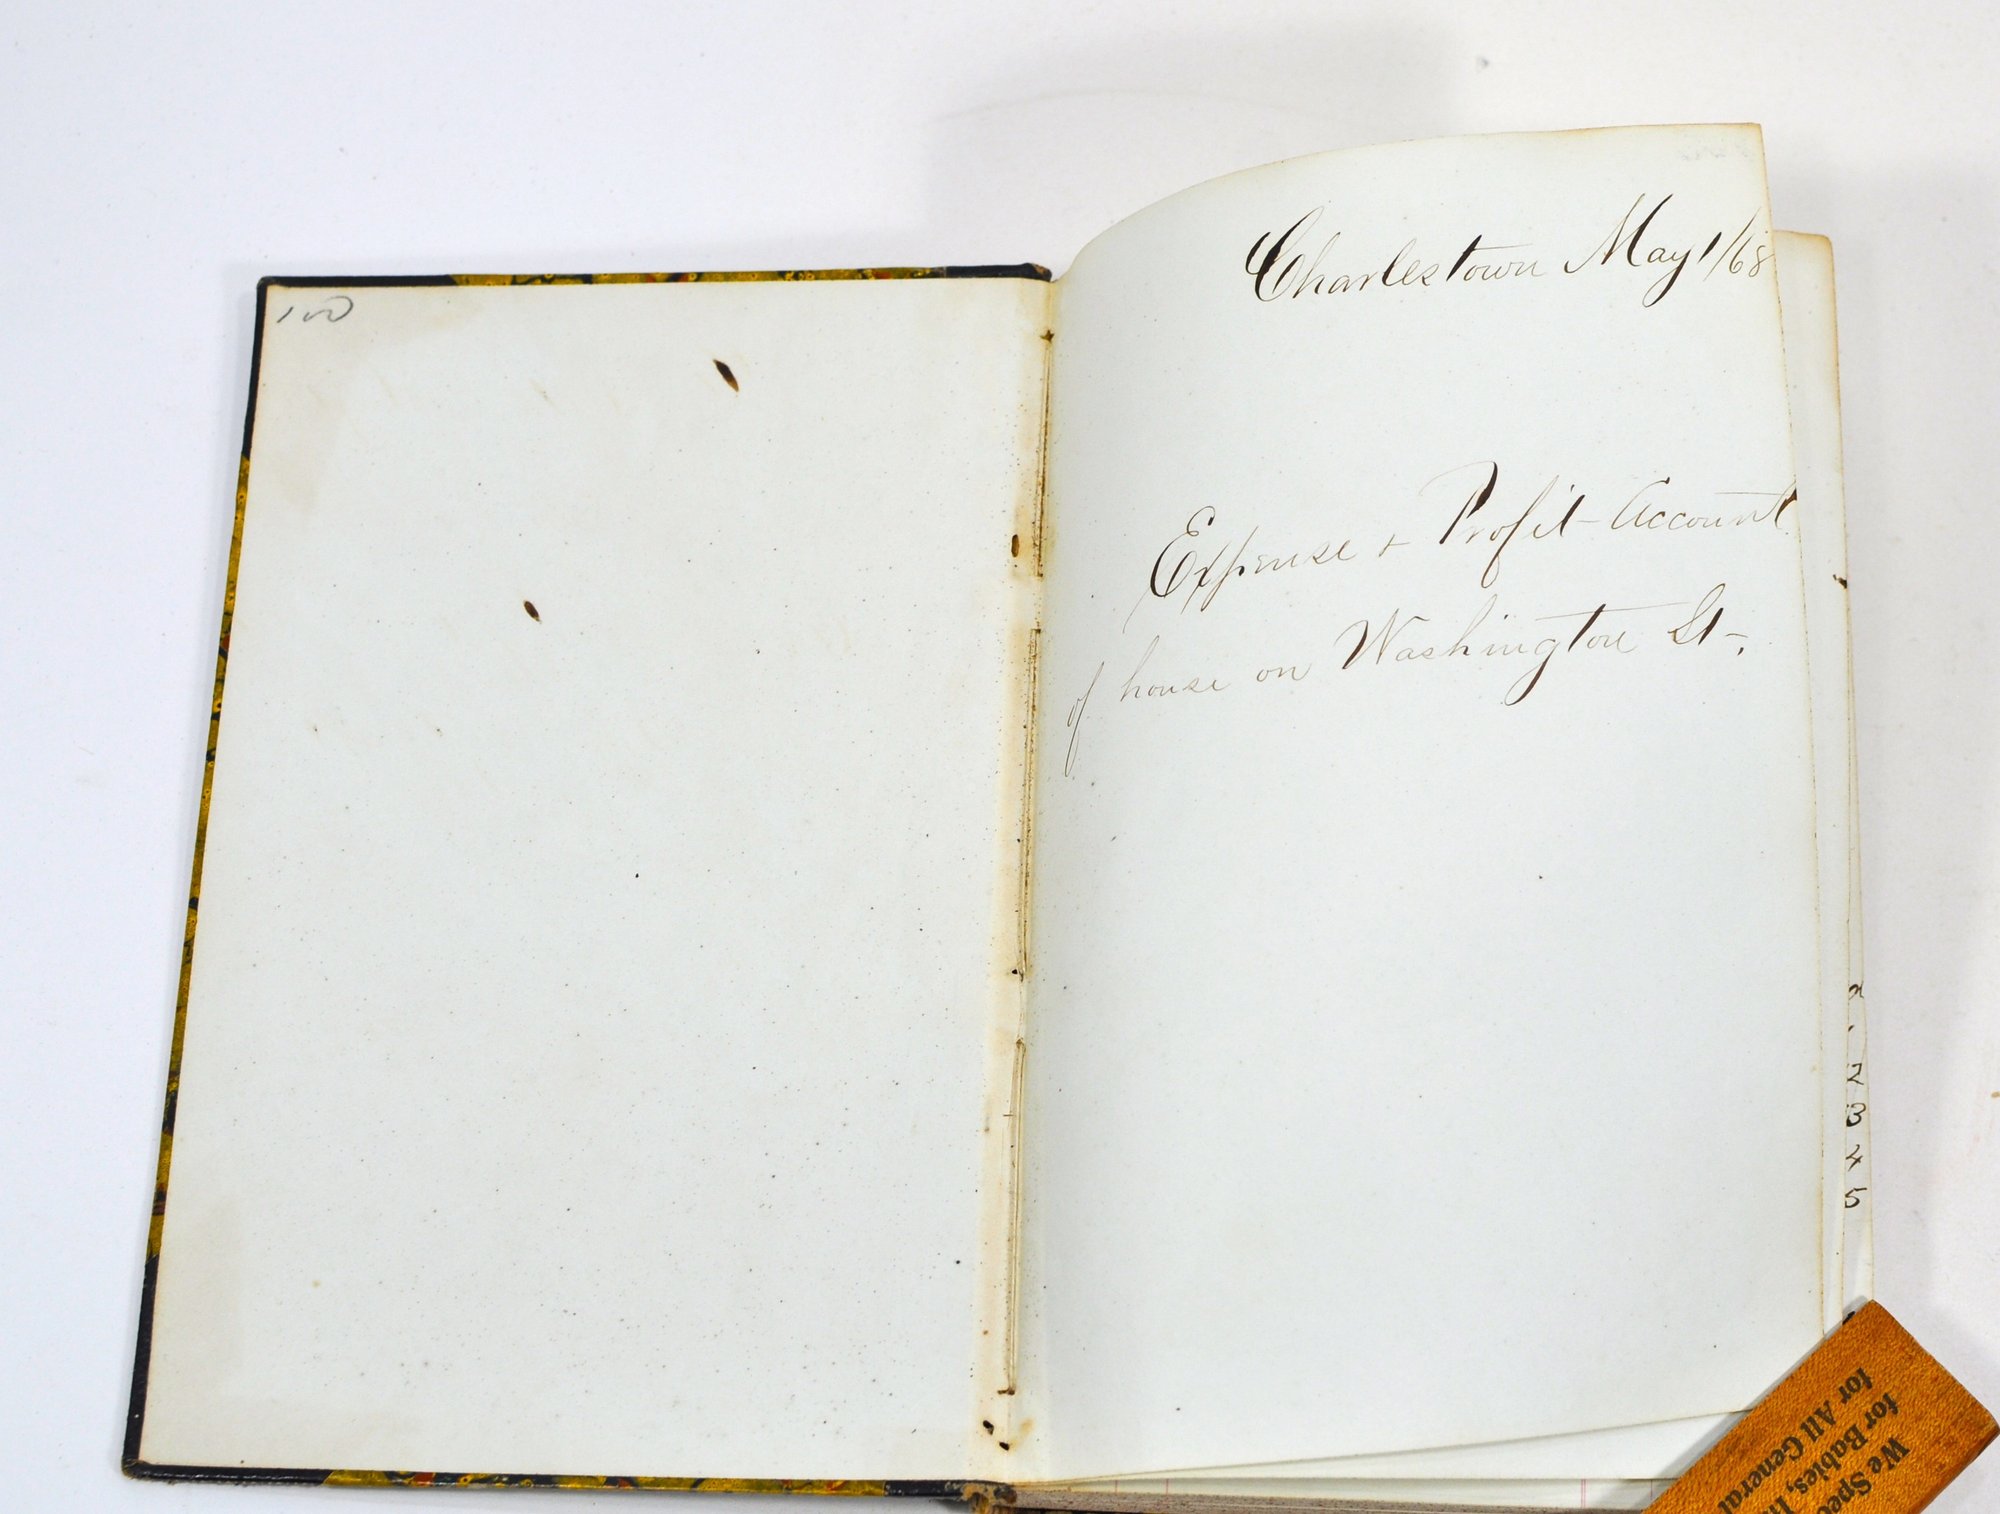 100
Charlestown May 1/68
Expense + Profit Account
of house on Washington St.
2
3
4
5
We Spec
for Babies,
for All General